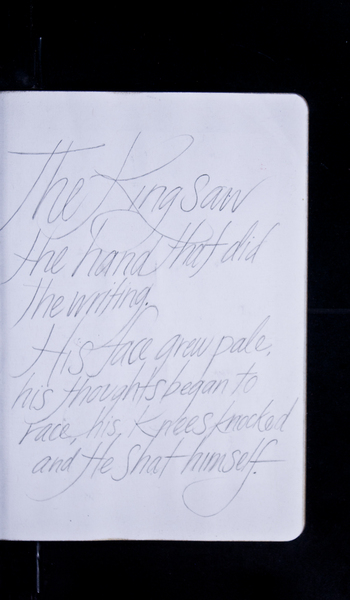 The King saw
the hand that did
the writing.
His face grew pale,
his thoughts began to
race, his Knees knocked
and He Shat himself.